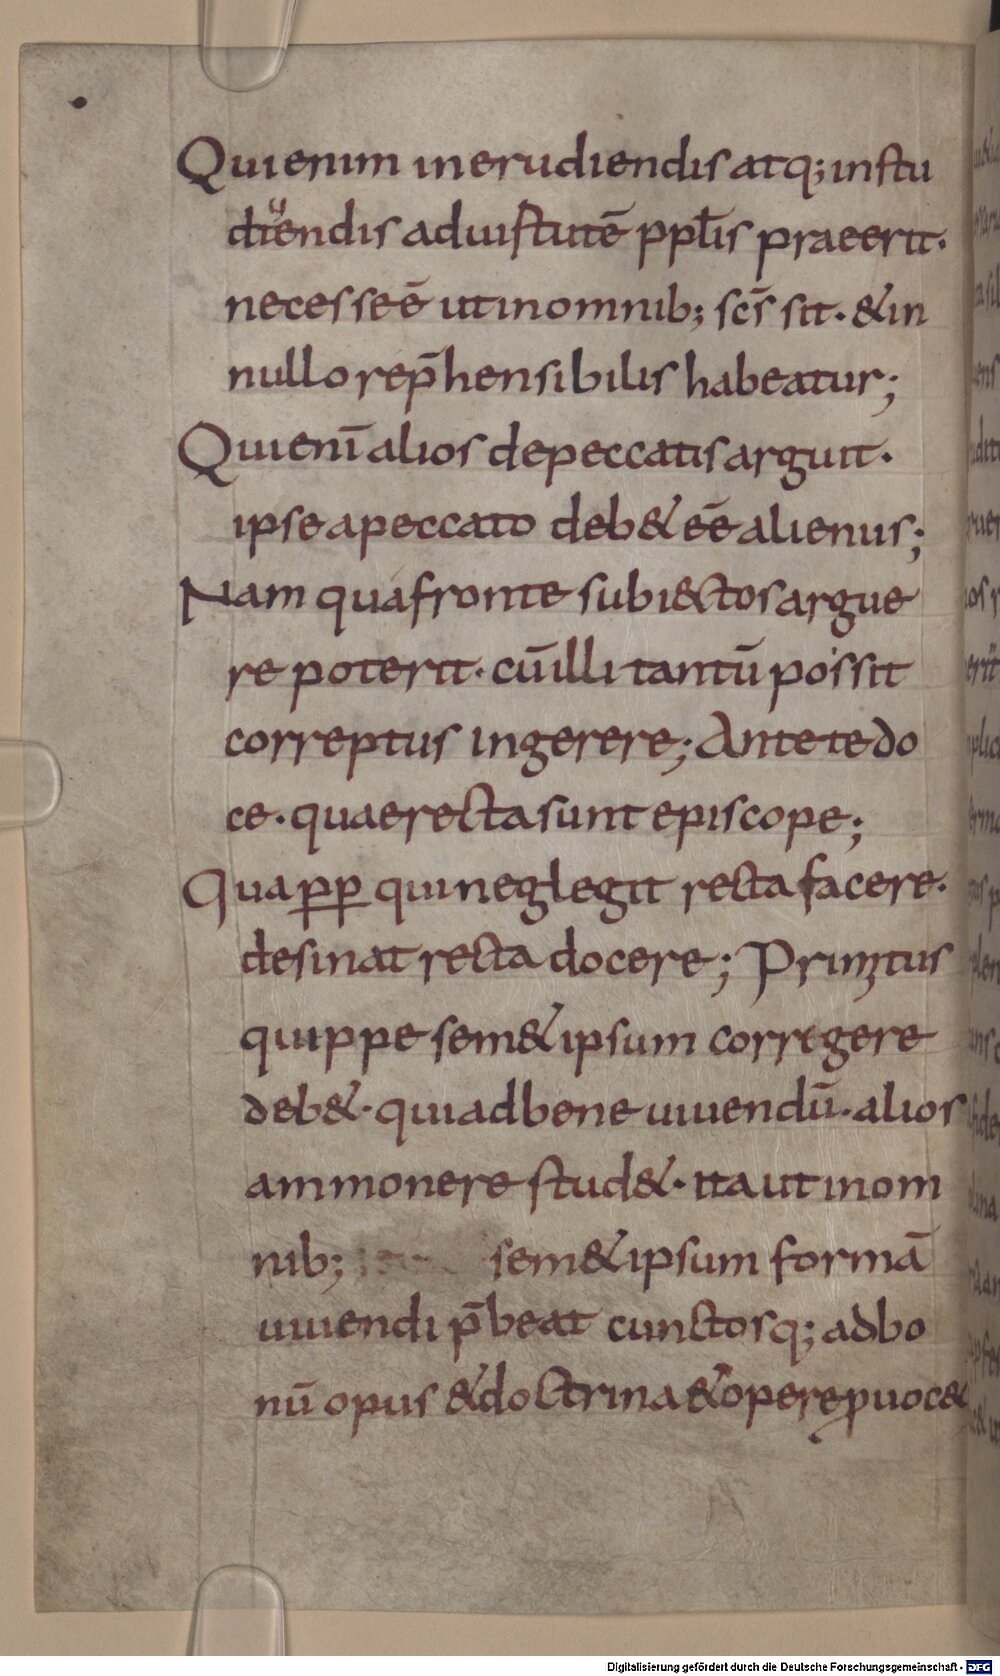 Qui enim in erudiendis atq; instu
diendis ad uistutē ppl̄is praeerit·
necesse ē ut in omnib; scs̄ sit· & in
nullo rep̄hensibilis habeatur;
Qui enī alios de peccatis arguit·
ipse a peccato deb& eē alienus;
Nam qua fronte subiectos argue
re poterit· cū illi tantū possit
correptus ingerere; Ante te do
ce· quae recta sunt episcope;
Quapp qui neglegit recta facere·
desinat recta docere; Primitus
quippe sem&ipsum corrigere
deb&· qui ad bene uiuendū· alios
ammonere stud&· ita ut in om
nib; sem&ipsum formā
uiuendi p̄beat cunctosq; ad bo
nū opus & doctrina & opere ꝓuoc&
Digitalisierung gefördert durch die Deutsche Forschungsgemeinschaft - DFG